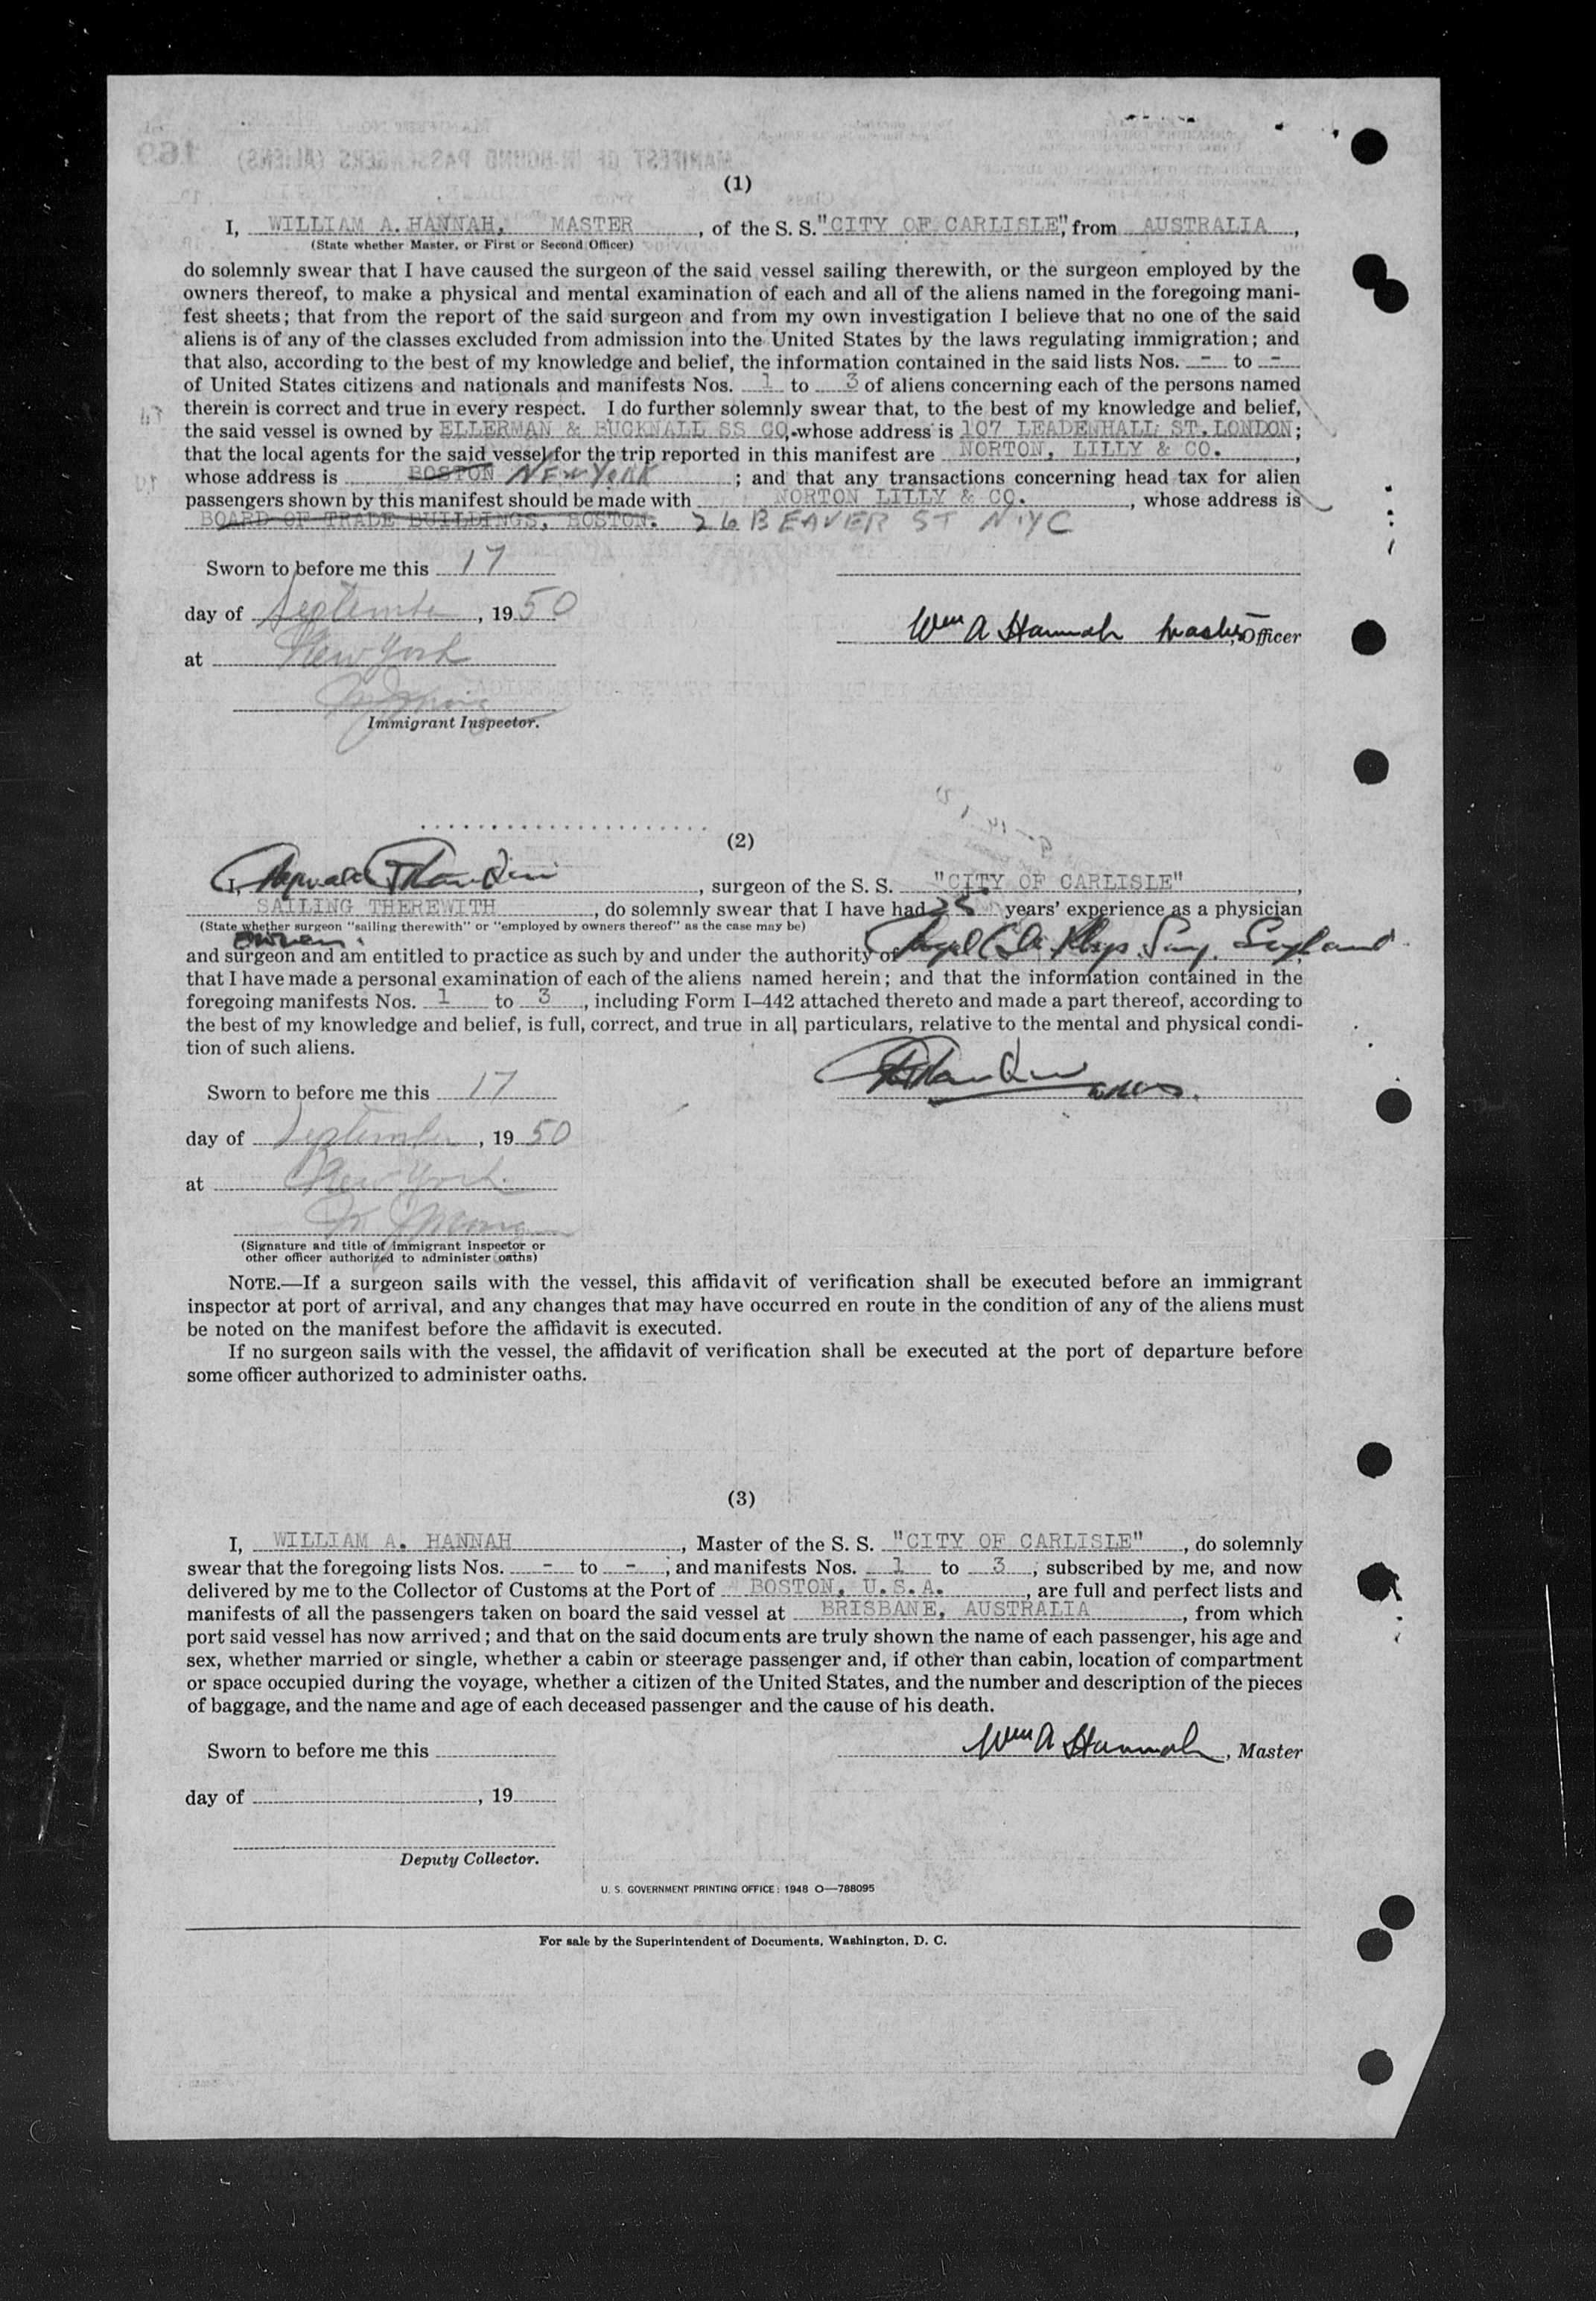 (1)
I, WILLIAM A. HANNAH, MASTER, of the S. S. "CITY OF CARLISLE", from AUSTRALIA,
(State whether Master, or First or Second Officer)
do solemnly swear that I have caused the surgeon of the said vessel sailing therewith, or the surgeon employed by the
owners thereof, to make a physical and mental examination of each and all of the aliens named in the foregoing mani-
fest sheets; that from the report of the said surgeon and from my own investigation I believe that no one of the said
aliens is of any of the classes excluded from admission into the United States by the laws regulating immigration; and
that also, according to the best of my knowledge and belief, the information contained in the said lists Nos. - to -
of United States citizens and nationals and manifests Nos. 1 to 3 of aliens concerning each of the persons named
therein is correct and true in every respect. I do further solemnly swear that, to the best of my knowledge and belief,
the said vessel is owned by ELLERMAN & BUCKNALL SS CO, whose address is 107 LEADENHALL ST. LONDON;
that the local agents for the said vessel for the trip reported in this manifest are NORTON, LILLY & CO.,
whose address is BOSTON NEW YORK; and that any transactions concerning head tax for alien
passengers shown by this manifest should be made with NORTON LILLY & CO., whose address is
BOARD OF TRADE BUILDINGS, BOSTON. 26 BEAVER ST NYC
Sworn to before me this 17
day of September, 1950
Wm A Hannah Master, Officer
at New York
Immigrant Inspector.
(2)
I, , surgeon of the S. S. "CITY OF CARLISLE",
SAILING THEREWITH, do solemnly swear that I have had 25 years' experience as a physician
(State whether surgeon "sailing therewith" or "employed by owners thereof" as the case may be)
and surgeon and am entitled to practice as such by and under the authority of Royal Phys. Surg. England,
that I have made a personal examination of each of the aliens named herein; and that the information contained in the
foregoing manifests Nos. 1 to 3, including Form I-442 attached thereto and made a part thereof, according to
the best of my knowledge and belief, is full, correct, and true in all particulars, relative to the mental and physical condi-
tion of such aliens.
Sworn to before me this 17
day of September, 1950
at New York
(Signature and title of immigrant inspector or
other officer authorized to administer oaths)
NOTE.—If a surgeon sails with the vessel, this affidavit of verification shall be executed before an immigrant
inspector at port of arrival, and any changes that may have occurred en route in the condition of any of the aliens must
be noted on the manifest before the affidavit is executed.
If no surgeon sails with the vessel, the affidavit of verification shall be executed at the port of departure before
some officer authorized to administer oaths.
(3)
I, WILLIAM A. HANNAH, Master of the S. S. "CITY OF CARLISLE", do solemnly
swear that the foregoing lists Nos. - to -, and manifests Nos. 1 to 3, subscribed by me, and now
delivered by me to the Collector of Customs at the Port of BOSTON, U.S.A., are full and perfect lists and
manifests of all the passengers taken on board the said vessel at BRISBANE, AUSTRALIA, from which
port said vessel has now arrived; and that on the said documents are truly shown the name of each passenger, his age and
sex, whether married or single, whether a cabin or steerage passenger and, if other than cabin, location of compartment
or space occupied during the voyage, whether a citizen of the United States, and the number and description of the pieces
of baggage, and the name and age of each deceased passenger and the cause of his death.
Sworn to before me this
Wm A Hannah, Master
day of , 19
Deputy Collector.
U. S. GOVERNMENT PRINTING OFFICE: 1948 O—788095
For sale by the Superintendent of Documents, Washington, D. C.